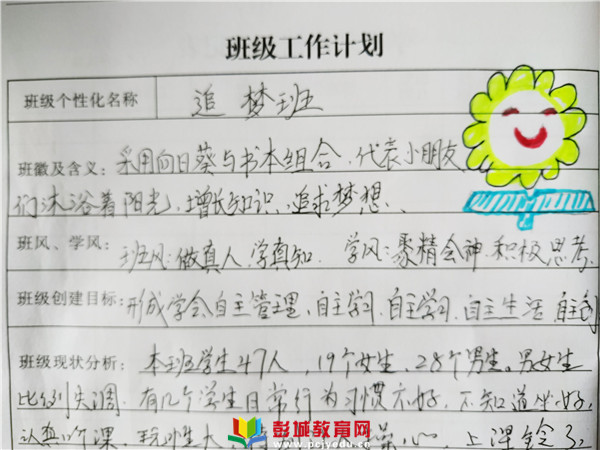 班级工作计划
班级个性化名称 追梦班
班徽及含义：采用向日葵与书本组合、代表小朋友
们沐浴着阳光、增长知识、追求梦想、
班风、学风：班风：做真人、学真知. 学风：聚精会神.积极思考.
班级创建目标：形成学会自主管理、自主学习、自主学习、自主生活 自主
班级现状分析：本班学生47人，19个女生，28个男生。男女生
比例失调.有几个学生日常行为习惯不好，不知道坐好，
认真听课，玩性大，操心，上课铃了
彭城教育网